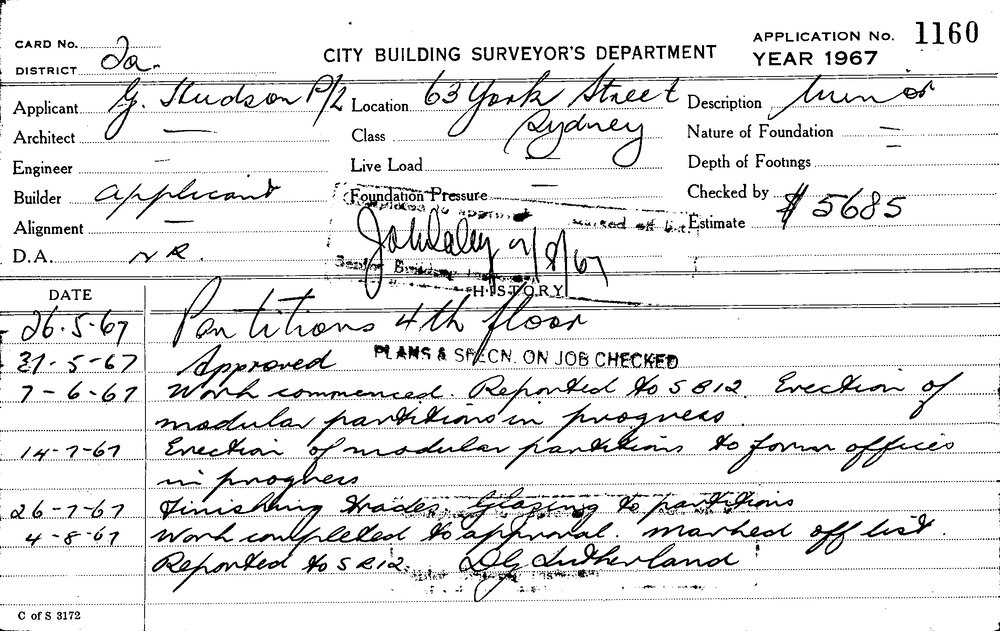 CARD No.
DISTRICT 2a.
CITY BUILDING SURVEYOR'S DEPARTMENT
APPLICATION No. 1160
YEAR 1967
Applicant G. Hudson P/L Location 63 York Street Sydney Description Minor
Architect — Class Nature of Foundation —
Engineer — Live Load — Depth of Footings —
Builder Applicant Foundation Pressure — Checked by
Alignment — Estimate $5685
D.A. N R.
Completed to approval marked off list
4/8/67
Senior Building
HISTORY
DATE
26-5-67 Partitions 4th floor
31-5-67 Approved PLANS & SPECN. ON JOB CHECKED
7-6-67 Work commenced. Reported to SBI2. Erection of
modular partitions in progress
14-7-67 Erection of modular partitions to form offices
in progress
26-7-67 Finishing trades. Glazing to partitions
4-8-67 Work completed to approval. marked off list.
Reported to SBI2. DG Sutherland
C of S 3172